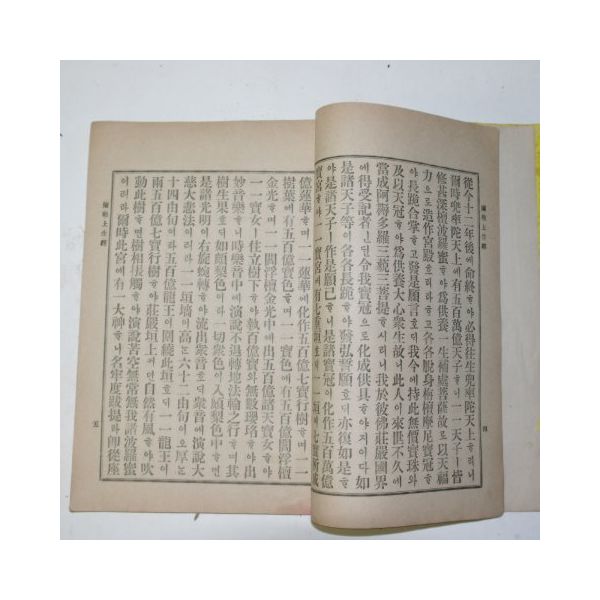 彌勒上生經
從今十二年後에命終ᄒᆞ야必得往生兜率陀天上ᄒᆞ리니
爾時兜率陀天上에有五百萬億天子ᄒᆞ니一一天子ㅣ
修甚深檀波羅蜜ᄒᆞ야爲供養一生補處菩薩故로以天福
力으로造作宮殿ᄒᆞ리라ᄒᆞ고各各脫身栴檀摩尼寶冠ᄒᆞ
야長跪合掌ᄒᆞ고發是願言호ᄃᆡ我今에持此無價寶珠와
及以天冠ᄒᆞ야爲供養大心衆生故ㅣ니此人이來世不久에
當成阿耨多羅三藐三菩提ᄒᆞ시리니我於彼佛莊嚴國界
에得受記者ㅣ인ᄃᆡᆫ令我寶冠으로化成供具ᄒᆞ야지이다如
是諸天子等이各各長跪ᄒᆞ야發弘誓願호ᄃᆡ亦復如是ᄒᆞ
야是諸天子ㅣ作是願已ᄒᆞ니是諸寶冠이化作五百萬億
寶宮ᄒᆞ야一一寶宮에有七重垣호ᄃᆡ一一垣에七寶所成
四
億蓮華ᄒᆞ며一一蓮華에化作五百億七寶行樹ᄒᆞ며一一
樹葉에有五百億寶色ᄒᆞ며一一寶色에有五百億閻浮檀
金光ᄒᆞ며一一閻浮檀金光中에出五百億諸天寶女ᄒᆞ야
一一寶女ㅣ住立樹下ᄒᆞ야執百億寶와無數瓔珞ᄒᆞ야出
妙音樂ᄒᆞ니時樂音中에演說不退轉地法輪之行ᄒᆞ며其
樹生果호ᄃᆡ如頗梨色이라一切衆色이入頗梨色中ᄒᆞ면
是諸光明이右旋婉轉ᄒᆞ야流出衆音호ᄃᆡ衆音에演說大
慈大悲法이러라一一垣墻이高는六十二由旬이오厚는
十四由旬이라五百億龍王이圍繞此垣호ᄃᆡ一一龍王이
雨五百億七寶行樹ᄒᆞ야莊嚴垣上이어든自然有風ᄒᆞ야吹
動此樹ᄒᆞ면樹相振觸ᄒᆞ야演說苦空無常無我諸波羅蜜
이러라爾時此宮에有一大神ᄒᆞ니名牢度跋提라卽從座
彌勒上生經
五